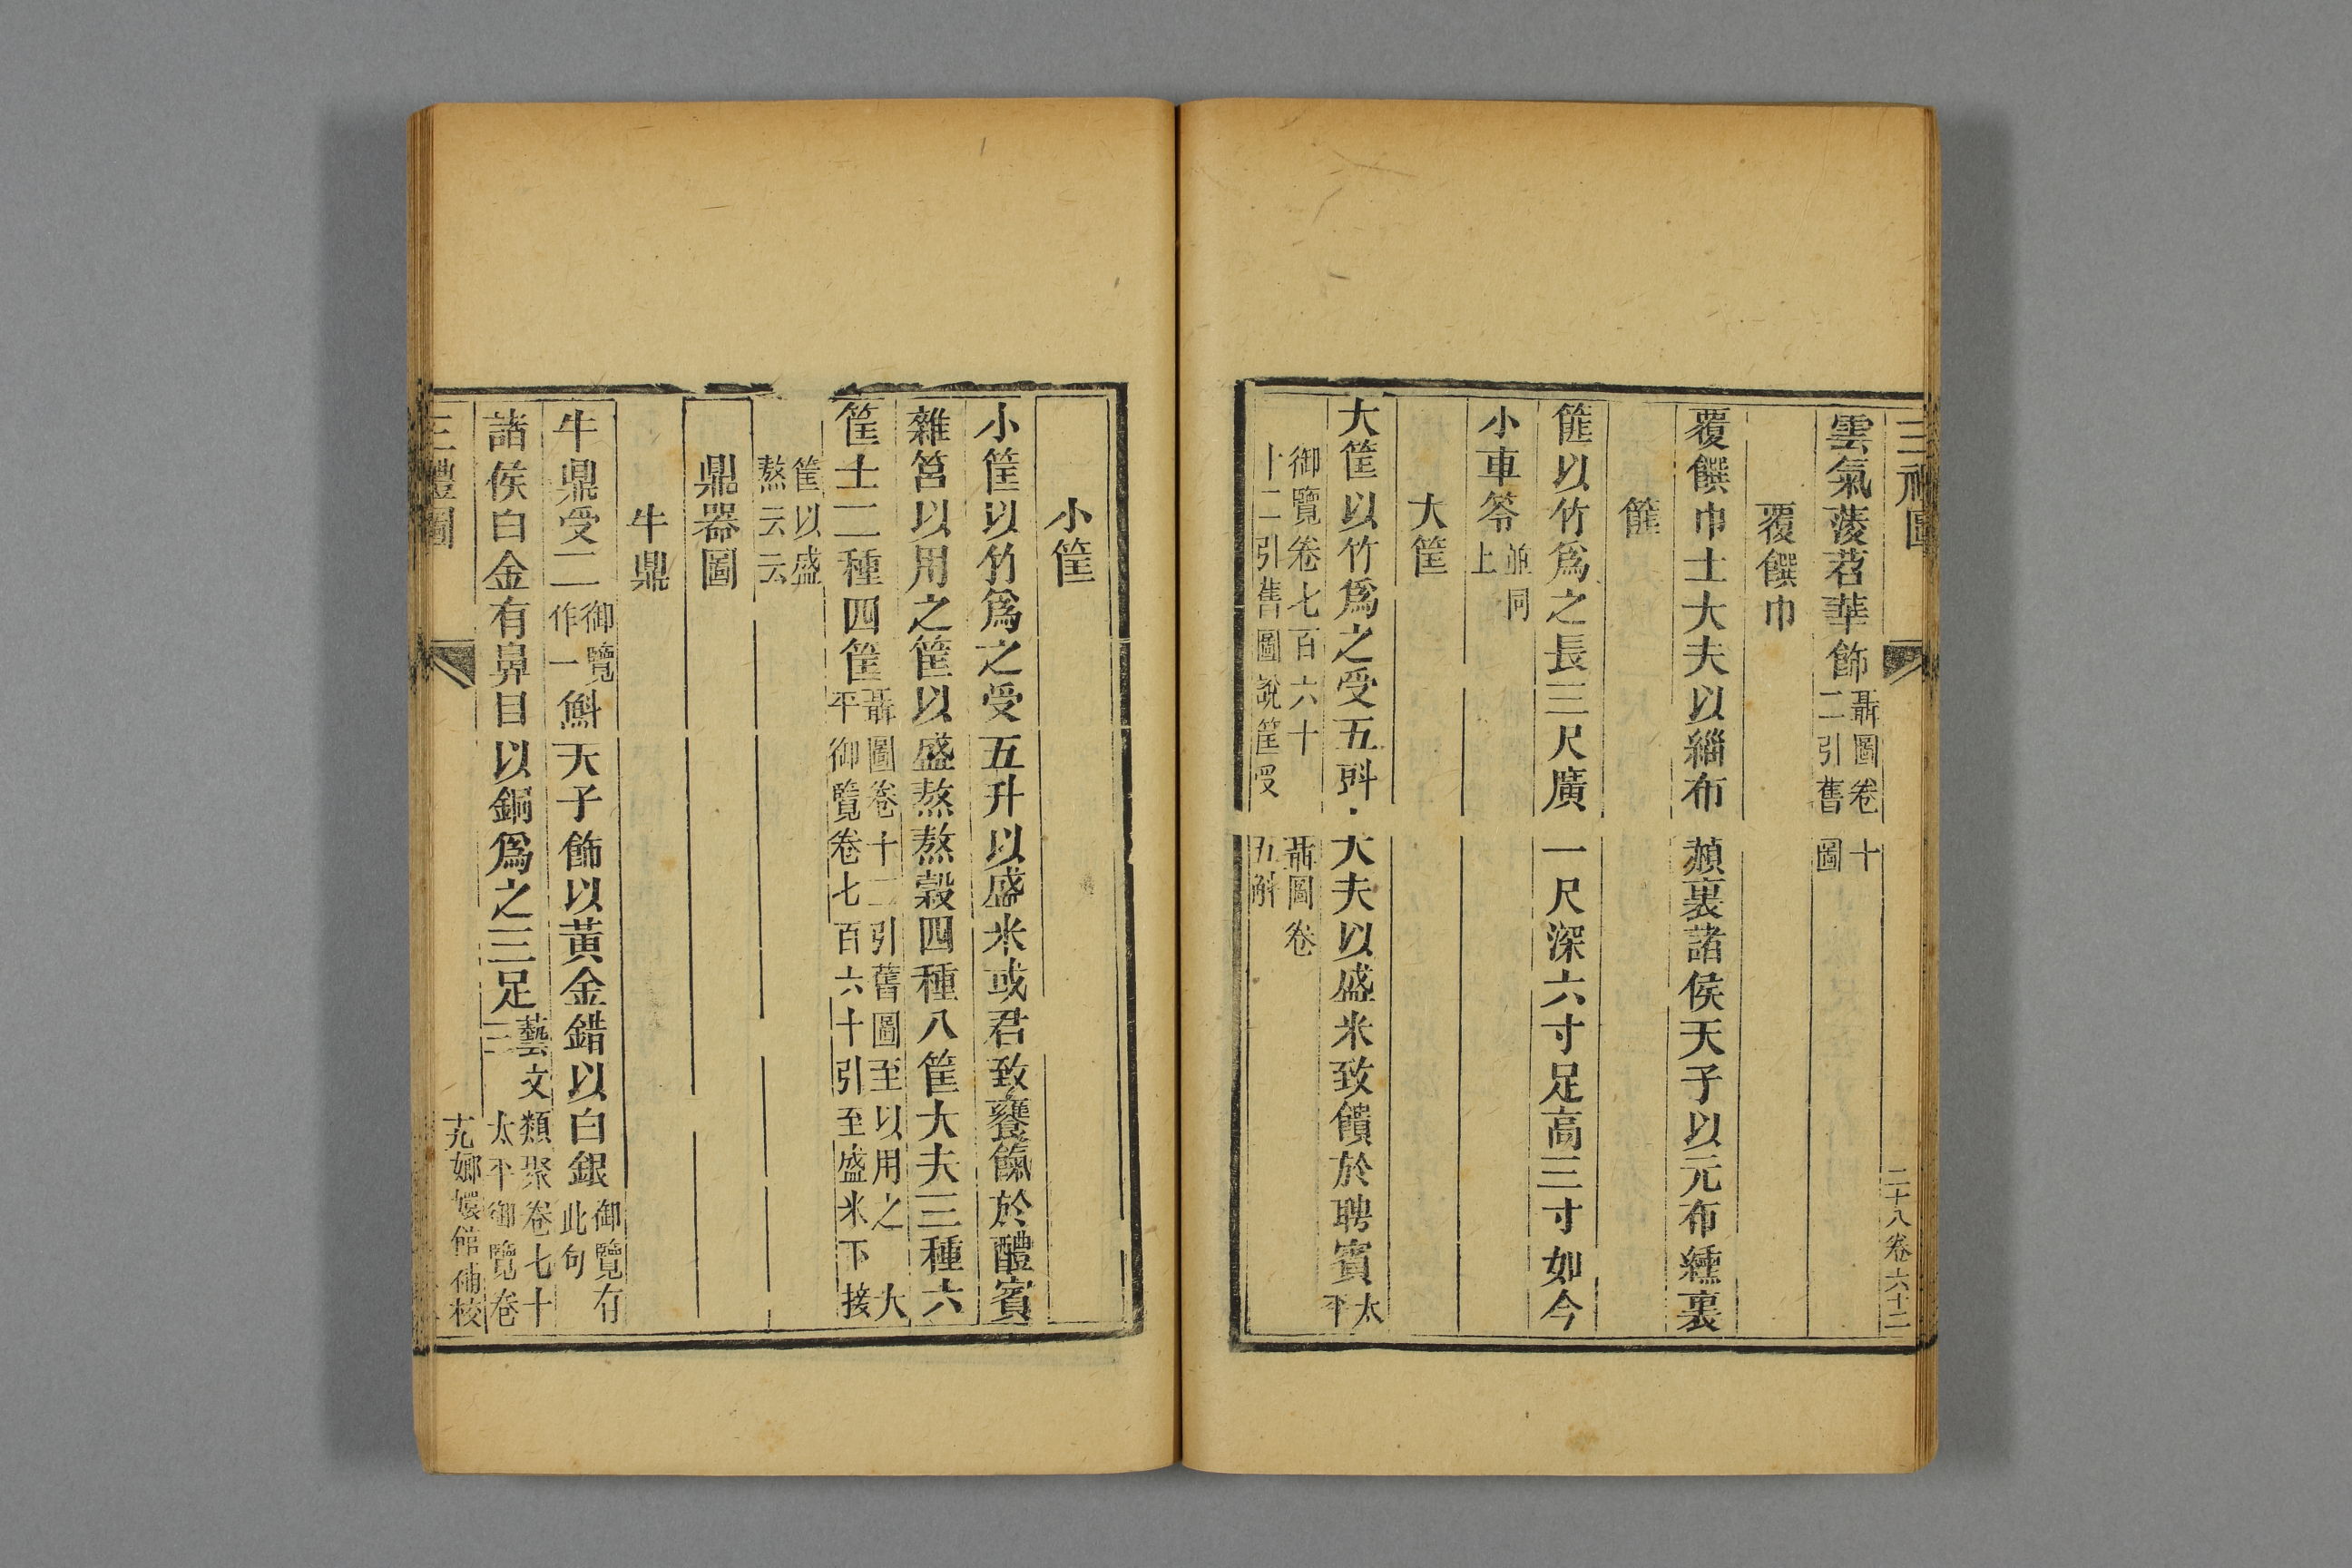 二十八卷六十二
雲氣蔆苕華飾聶圖卷十
二引舊圖
覆饌巾
覆饌巾士大夫以緇布赬裏諸侯天子以元布纁裏
篚
篚以竹爲之長三尺廣一尺深六寸足高三寸如今
小車笭並同
上
大筐
大筐以竹爲之受五㪷大夫以盛米致饋於聘賓太
平
御覽卷七百六十聶圖卷
十二引舊圖說筐受五斛
小筐
小筐以竹爲之受五升以盛米或君致饔餼於醴賓
雜筥以用之筐以盛熬熬穀四種八筐大夫三種六
筐士二種四筐聶圖卷十二引舊圖至以用之大
平御覽卷七百六十引至盛米下接
筐以盛
熬云云
鼎器圖
牛鼎
牛鼎受一御覽
作一斛天子飾以黃金錯以白銀御覽有
此句
諸侯白金有鼻目以銅爲之三足藝文類聚卷七十
三太平御覽卷
三禮圖
嫏嬛館補校